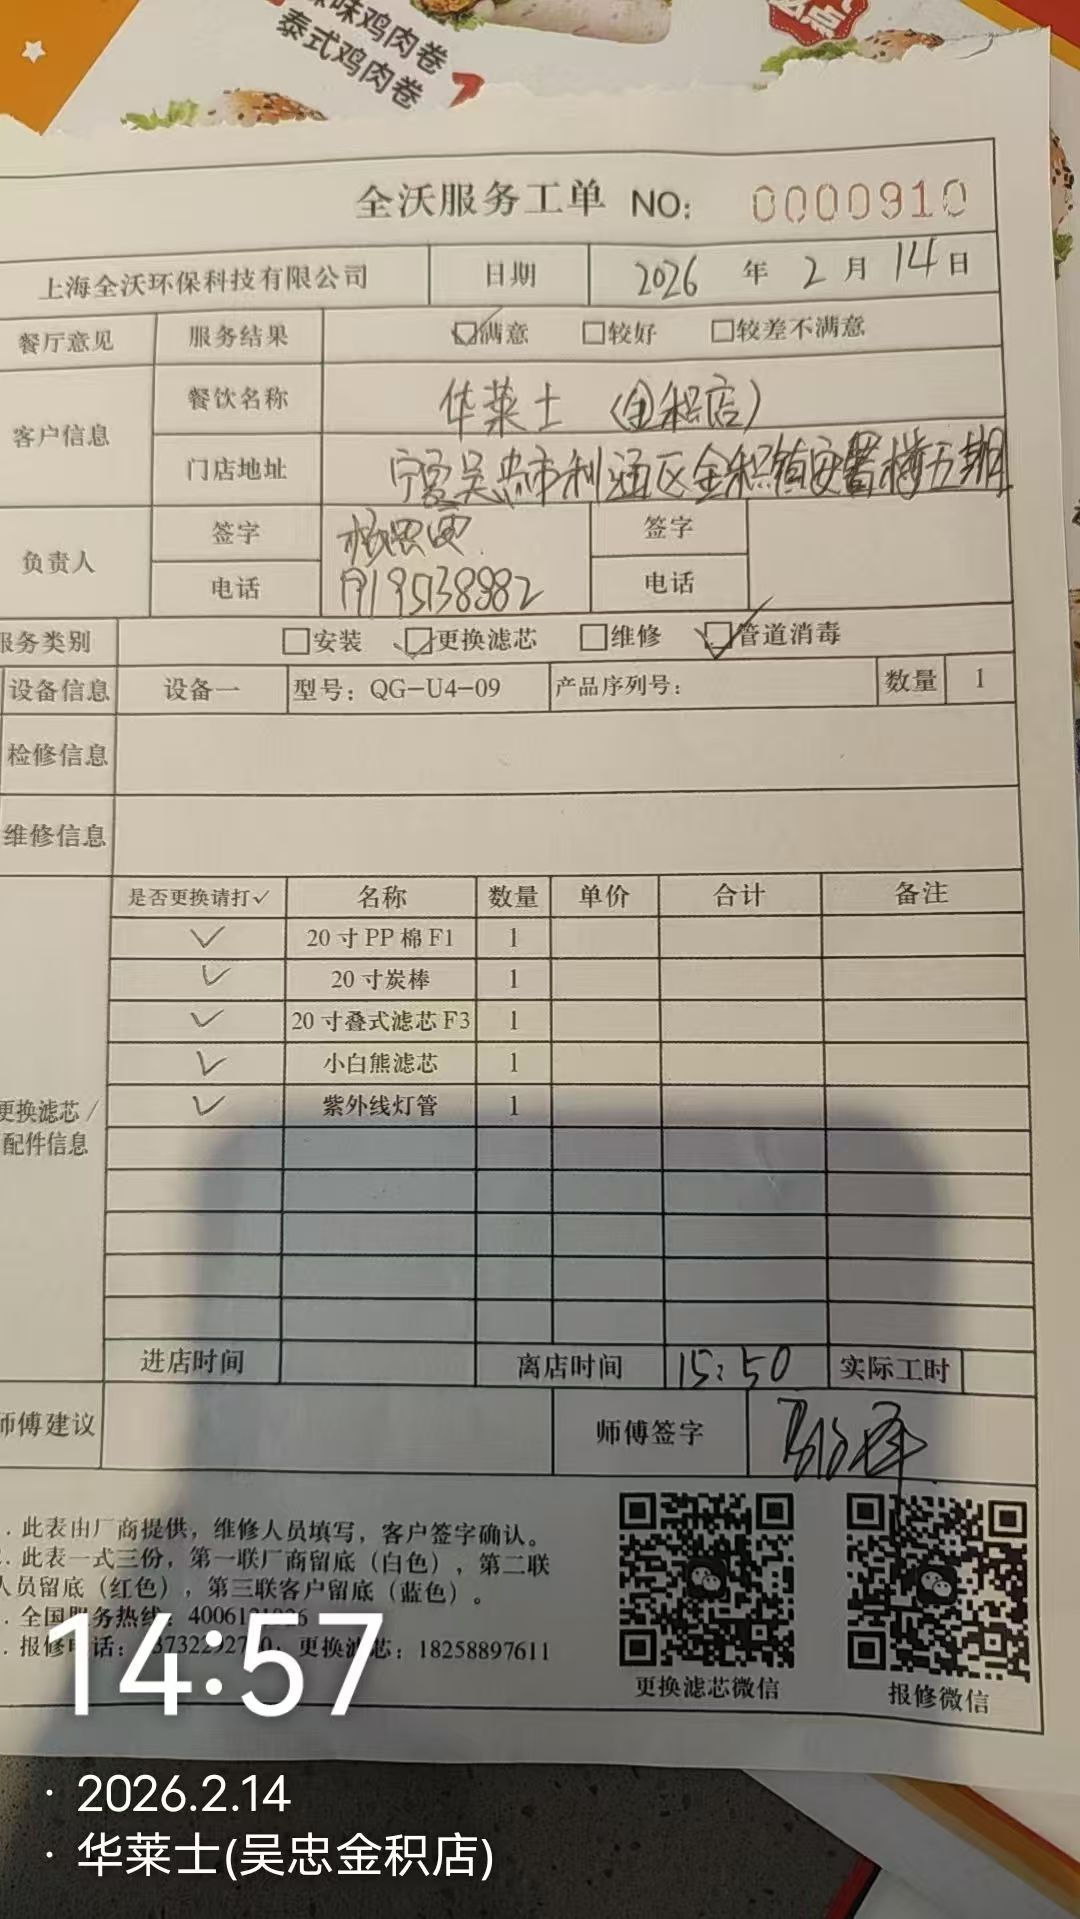 味鸡肉卷
泰式鸡肉卷
全沃服务工单 NO: 0000910
上海全沃环保科技有限公司 日期 2026 年 2 月 14 日
餐厅意见 服务结果 满意 较好 较差不满意
客户信息 餐饮名称 华莱士（金积店）
门店地址 宁夏吴忠市利通区金积镇安置楼五期
负责人 签字 签字
电话 电话
服务类别 安装 更换滤芯 维修 管道消毒
设备信息 设备一 型号：QG-U4-09 产品序列号： 数量 1
检修信息
维修信息
是否更换请打✓ 名称 数量 单价 合计 备注
✓ 20寸PP棉F1 1
✓ 20寸炭棒 1
✓ 20寸叠式滤芯F3 1
✓ 小白熊滤芯 1
✓ 紫外线灯管 1
更换滤芯/
配件信息
进店时间 离店时间 15:50 实际工时
师傅建议 师傅签字
. 此表由厂商提供，维修人员填写，客户签字确认。
. 此表一式三份，第一联厂商留底（白色），第二联
人员留底（红色），第三联客户留底（蓝色）。
. 全国服务热线：
. 报修电话： 更换滤芯：18258897611
更换滤芯微信
报修微信
14:57
· 2026.2.14
· 华莱士(吴忠金积店)